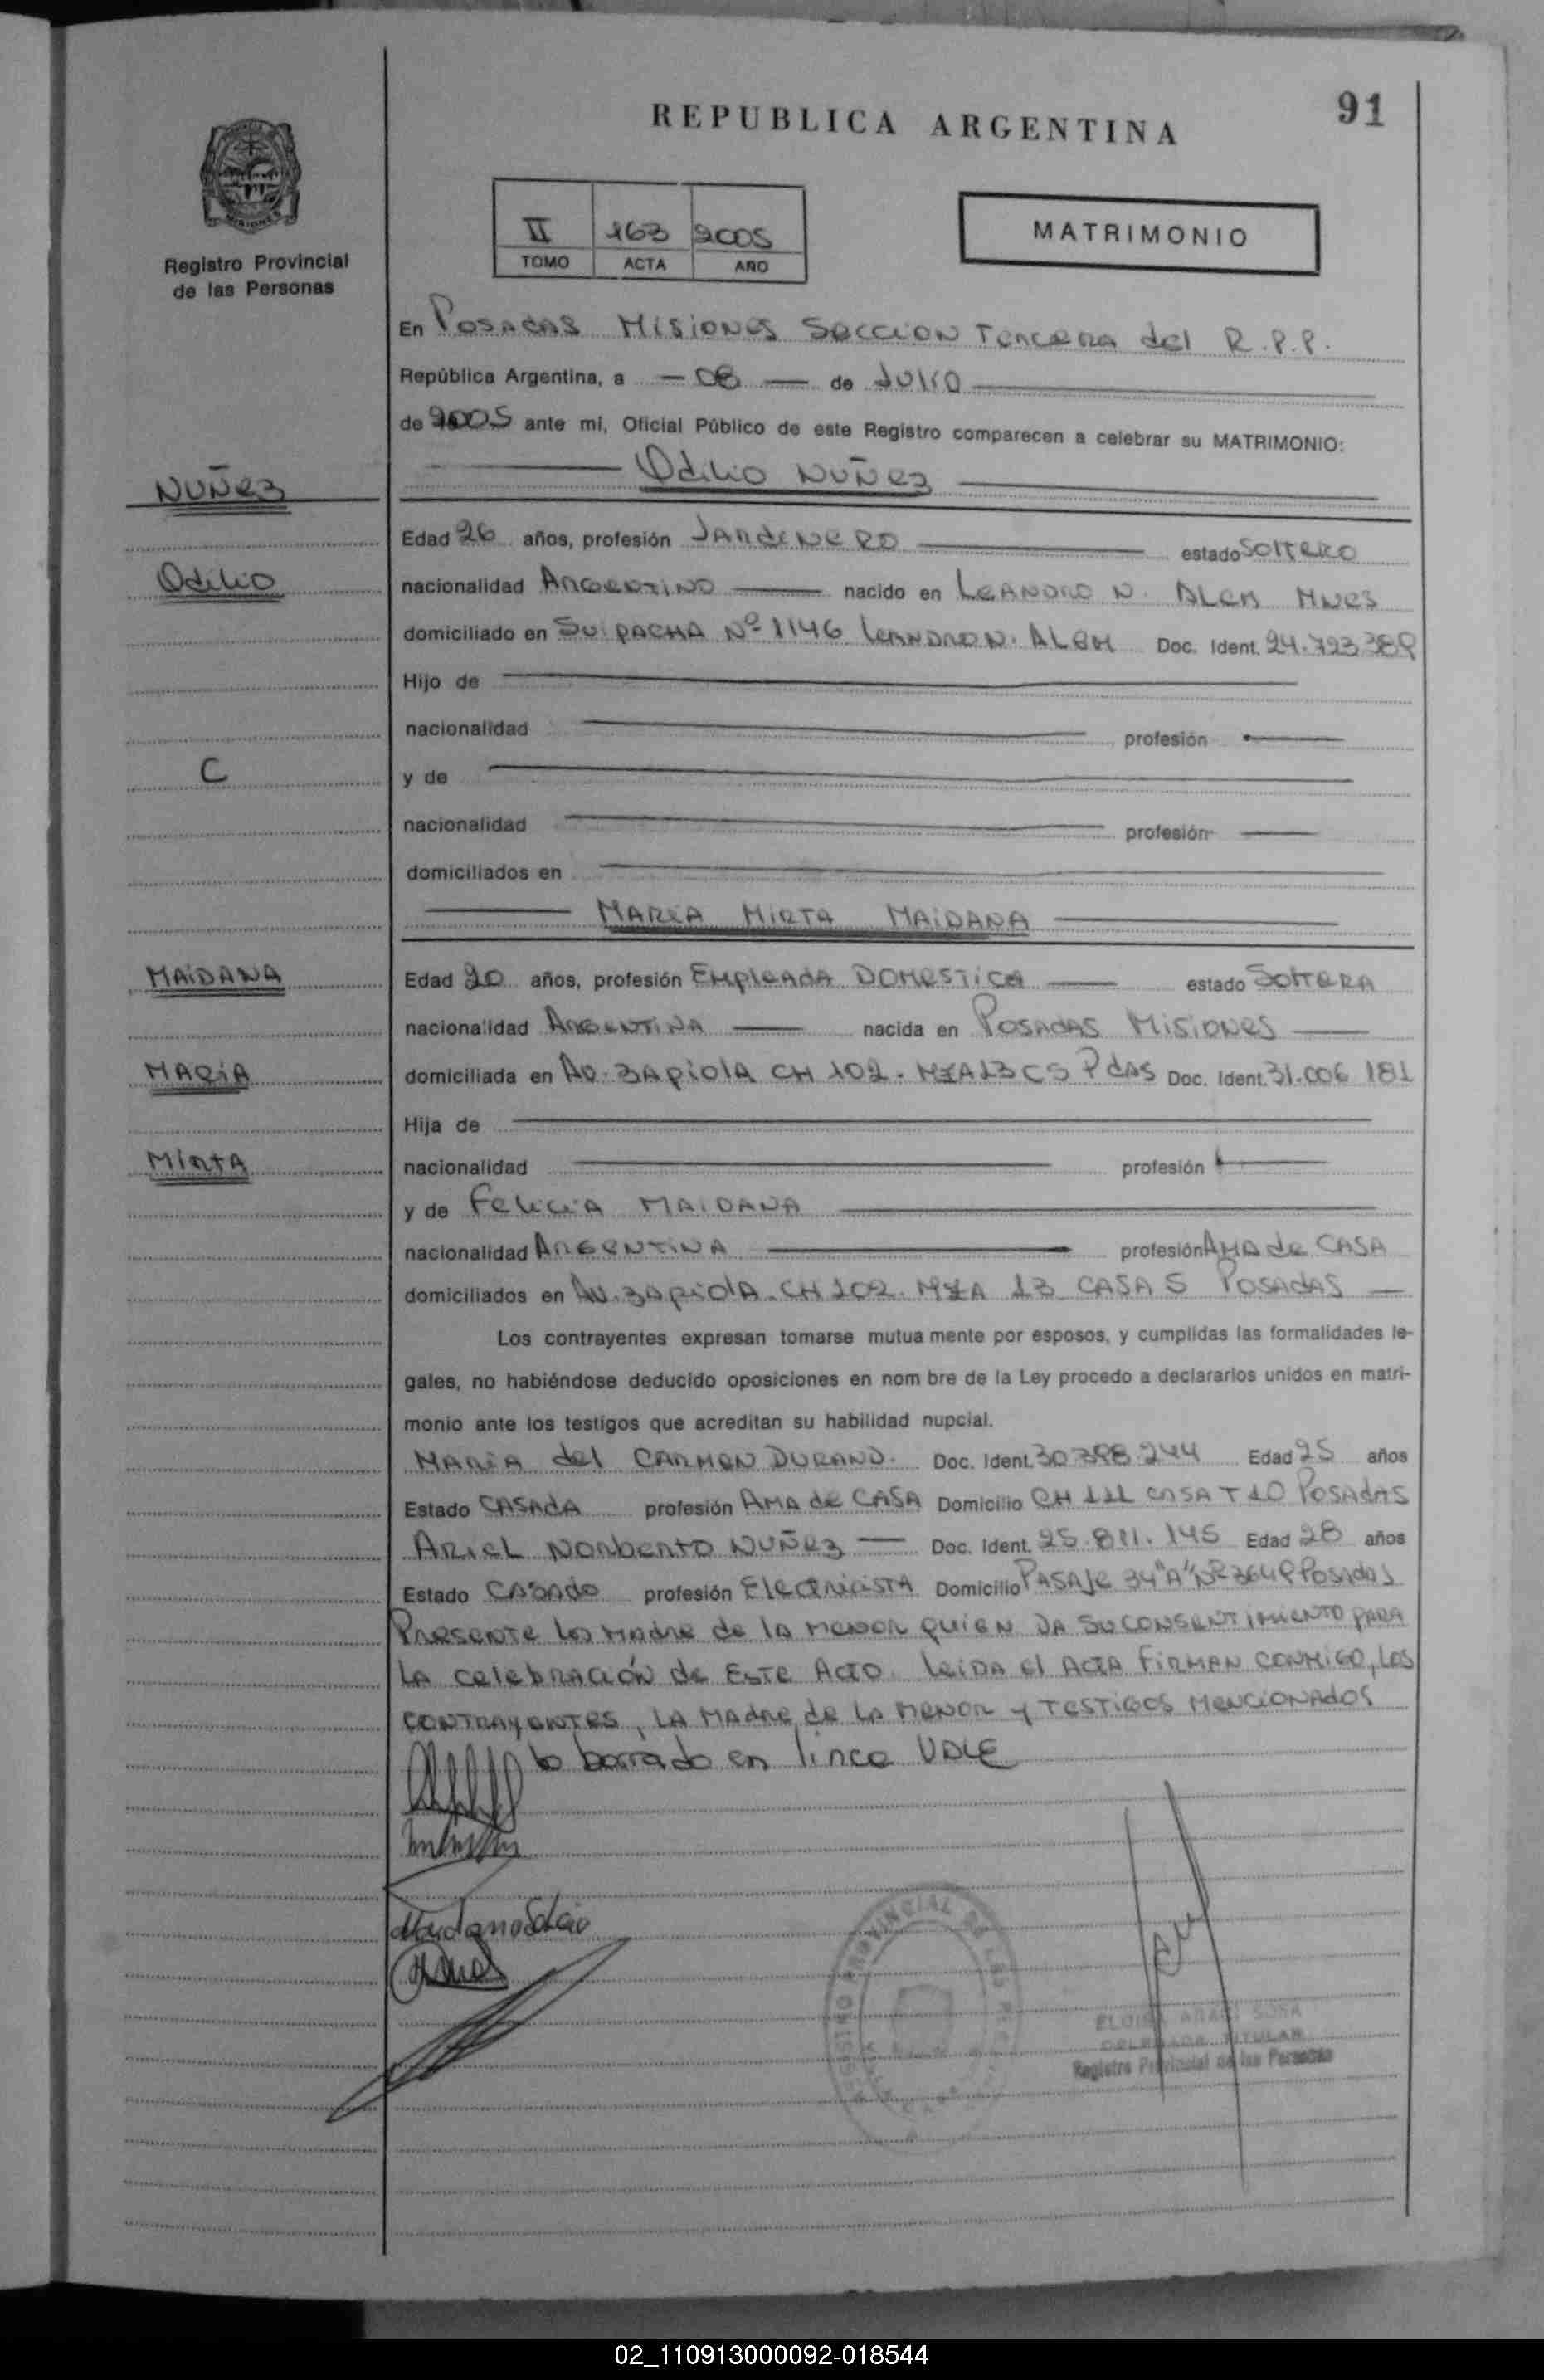 REPUBLICA ARGENTINA
91
MISIONES
Registro Provincial
de las Personas
II 163 2005
TOMO ACTA AÑO
MATRIMONIO
En Posadas Misiones Seccion Tercera del R.P.P.
República Argentina, a - 08 - de Julio
de 2005 ante mi, Oficial Público de este Registro comparecen a celebrar su MATRIMONIO:
Odilio NUÑez
NUÑez
Edad 26 años, profesión Jardinero estado Soltero
Odilio
nacionalidad Argentino nacido en Leandro N. Alem Mnes
domiciliado en Suipacha Nº 1146 Leandro N. Alem Doc. Ident. 24.723.389
Hijo de
nacionalidad profesión
C
y de
nacionalidad profesión
domiciliados en
MARIA MIRTA MAIDANA
MAIDANA
Edad 20 años, profesión Empleada Domestica estado Soltera
nacionalidad Argentina nacida en Posadas Misiones
MARIA
domiciliada en Av. Zapiola CH 102. MZA 13 CS Pdas Doc. Ident. 31.006 181
Hija de
MIRTA
nacionalidad profesión
y de Felicia MAIDANA
nacionalidad Argentina profesión Ama de CASA
domiciliados en Av. Zapiola. CH 102. MZA 13 CASA 5 Posadas
Los contrayentes expresan tomarse mutua mente por esposos, y cumplidas las formalidades le-
gales, no habiéndose deducido oposiciones en nom bre de la Ley procedo a declararlos unidos en matri-
monio ante los testigos que acreditan su habilidad nupcial.
MARIA del CARMEN DURAND. Doc. Ident. 30.398.244 Edad 25 años
Estado CASADA profesión Ama de CASA Domicilio CH 111 casa T 10 Posadas
Ariel Norberto NUÑez Doc. Ident. 25.811.145 Edad 28 años
Estado CASADO profesión Electricista Domicilio Pasaje 34"A" Nº 3649 Posadas
Presente la Madre de la menor quien da su consentimiento para
la celebración de Este Acto. Leida el Acta firman conmigo, los
contrayentes, la Madre de la menor y testigos mencionados
lo borrado en linea VALE
REGISTRO PROVINCIAL DE LAS
SOSA
TITULAR
Registro Provincial de las Personas
02_110913000092-018544